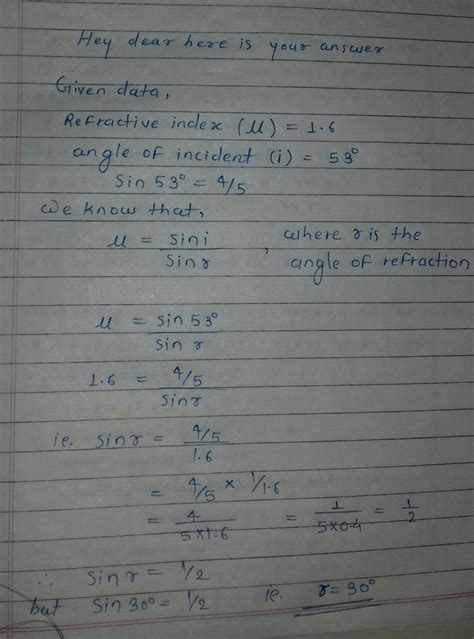 Hey dear here is your answer
Given data,
Refractive index (μ) = 1.6
angle of incident (i) = 53°
Sin 53° = 4/5
We know that,
μ = sin i / Sin r , where r is the angle of refraction
μ = sin 53° / sin r
1.6 = 4/5 / Sin r
ie. sin r = 4/5 / 1.6
= 4/5 × 1/1.6
= 4 / 5×1.6 = 1 / 5×0.4 = 1/2
∴ Sin r = 1/2
but Sin 30° = 1/2 ie. r = 30°